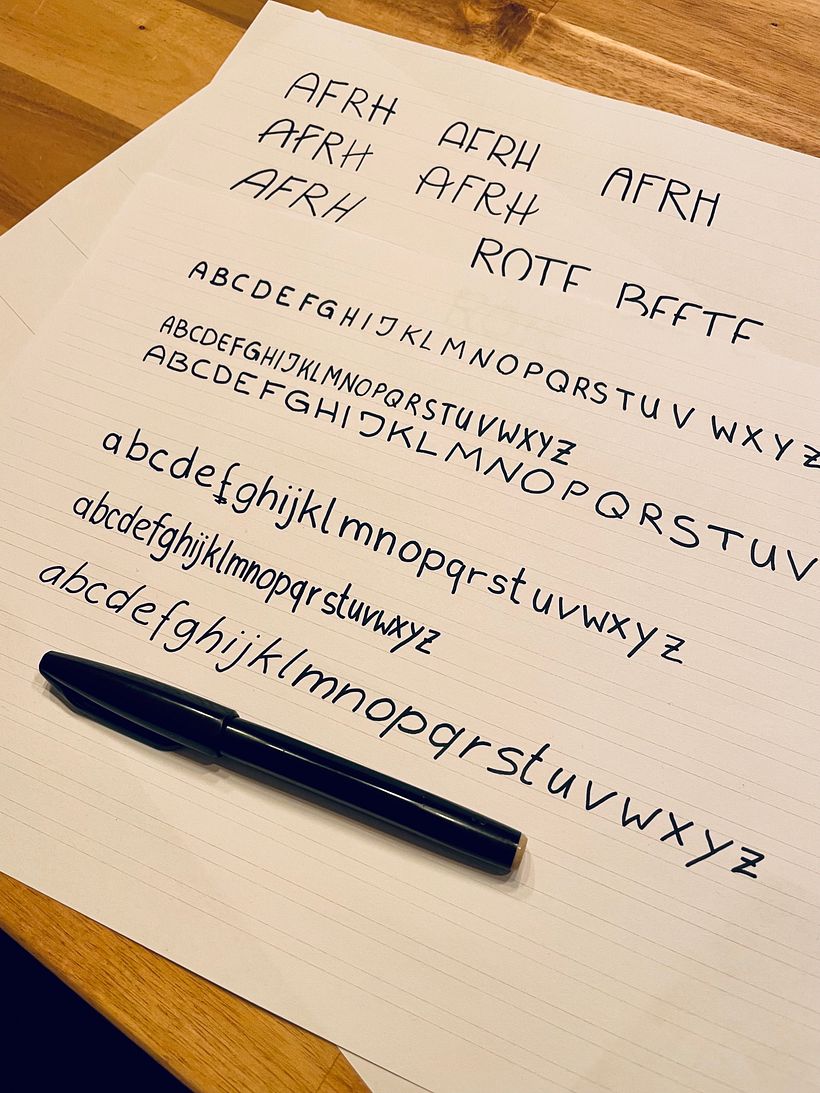 AFRH AFRH AFRH
AFRH AFRH
AFRH
ROTF BFFTF
ABCDEFGHIJKLMNOPQRSTUV WXYZ
ABCDEFGHIJKLMNOPQRSTUVWXYZ
ABCDEFGHIJKLMNOPQRSTUV
abcdefghijklmnopqrstuvwxyz
abcdefghijklmnopqrstuvwxyz
abcdefghijklmnopqrstuvwxyz